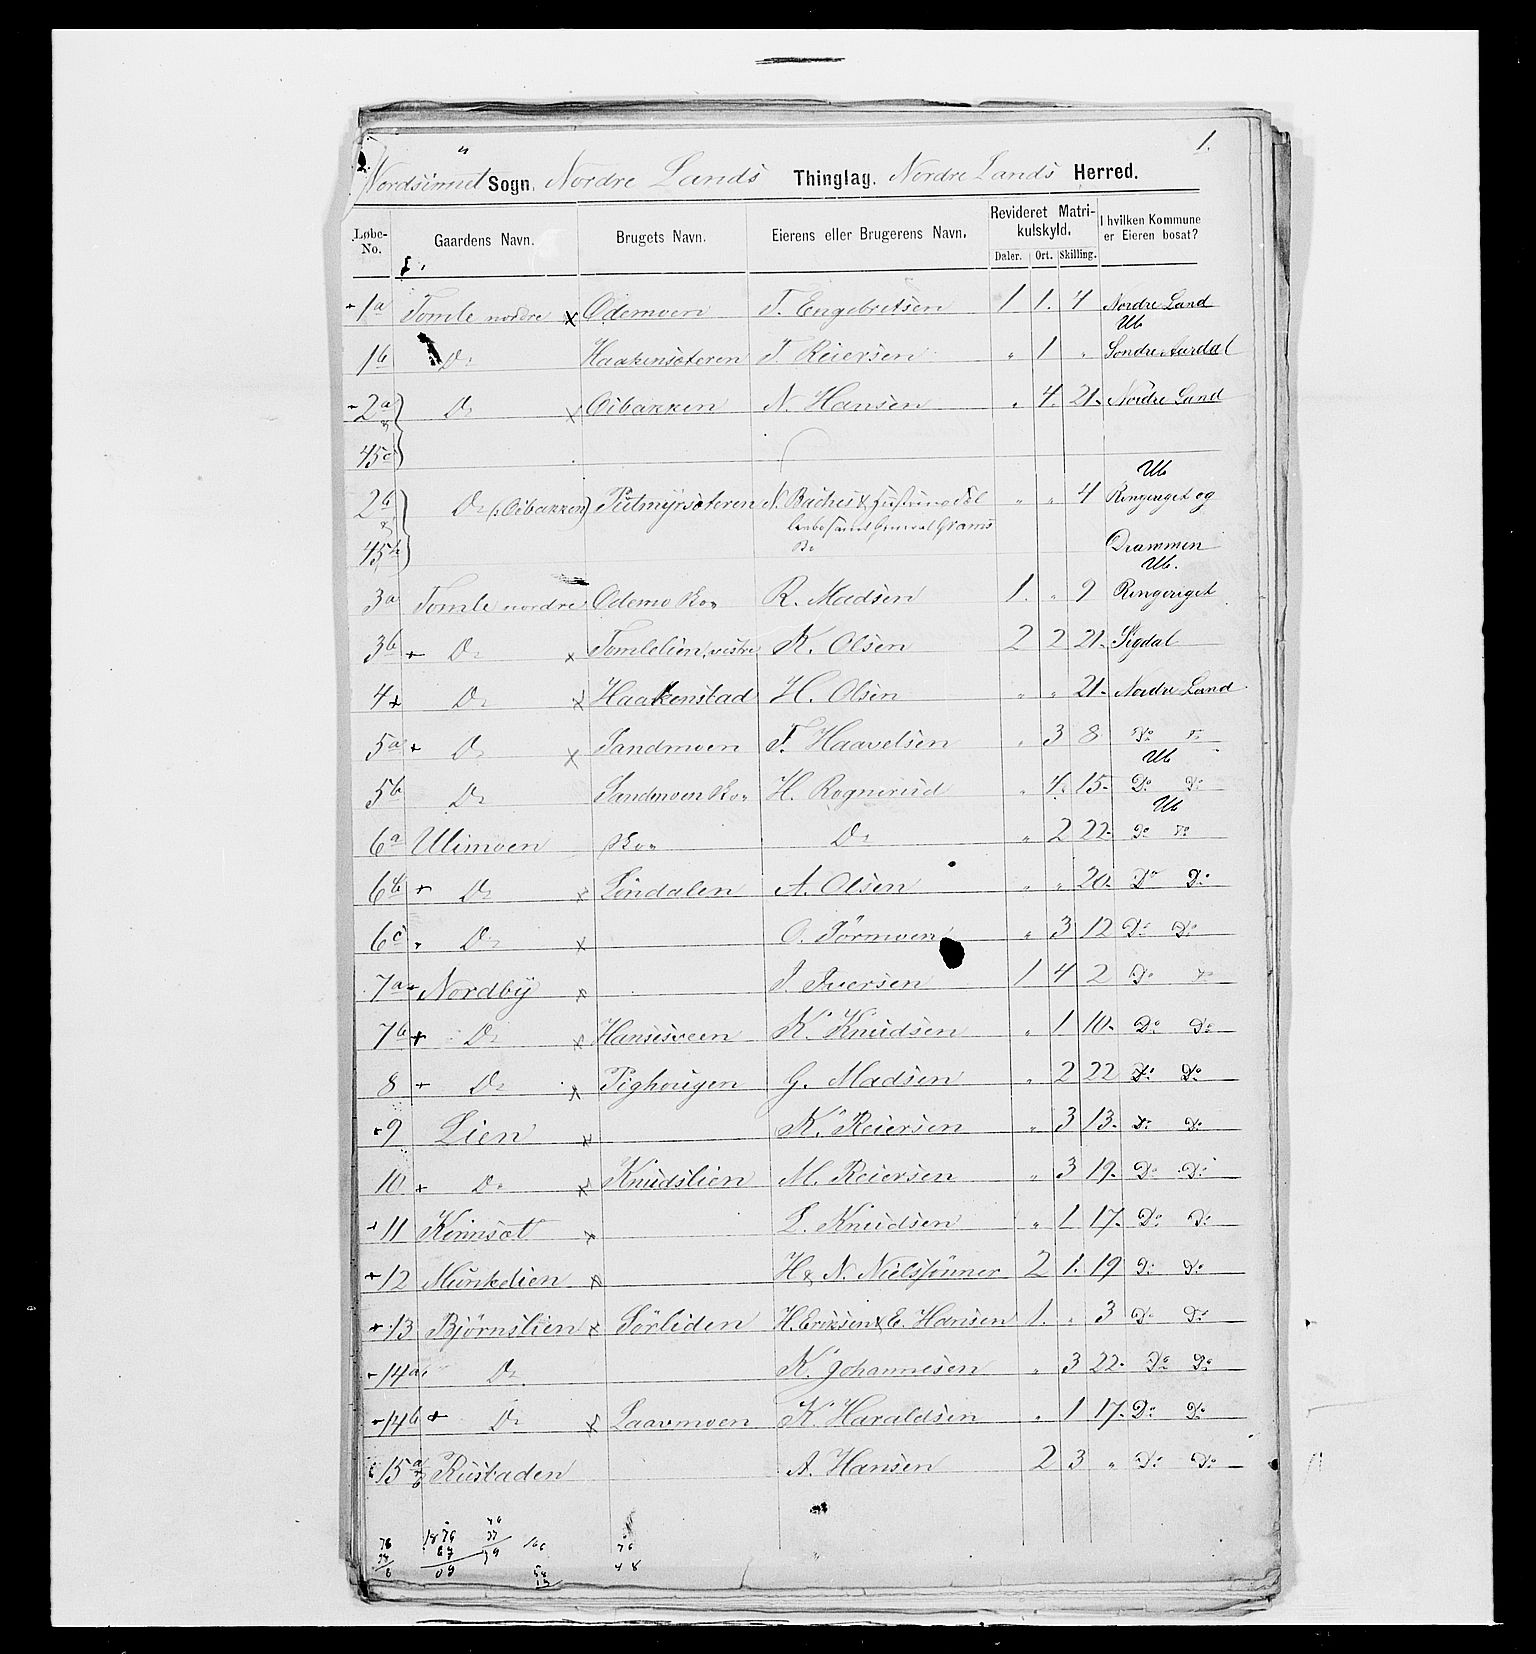 1.
Nordsinnet Sogn. Nordre Lands Thinglag. Nordre Lands Herred.
Løbe-No. Gaardens Navn. Brugets Navn. Eierens eller Brugerens Navn. Revideret Matrikulskyld. I hvilken Kommune er Eieren bosat?
Daler. Ort. Skilling.
1a Tomle nordre x Odemoen T. Engebretsen 1 1. 4 Nordre Land
1b Do Haakensæteren T. Reiersen " 1 " Ub Søndre Aurdal
2a Do x Oibakken N. Hansen " 4. 21. Nordre Land
45a
2b Do (: Oibakken) Putmyrsæteren N. Baches & " " 4 Ub Ringeriget og
samt General
45b Drammen
3a Tomle nordre Odemo R. Madsen 1. " 9 Ub. Ringeriget
3b + Do x Tomlelien, vestre K. Olsen 2 2 21. Sigdal
4 + Do x Haakenstad H. Olsen " " 21. Nordre Land
5a + Do x Sandmoen T. Haavelsen " 3 8 Do Do
5b Do Sandmoen H. Rognerud " 4. 15. Ub Do Do
6a Ulimoen Do " 2 22. Ub Do Do
6b + Do x Lindalen A. Olsen " " 20. Do Do
6c Do x O. Törmoen " 3 12 Do Do
7a Nordby x I. Iversen 1 4 2 Do Do
7b + Do x Hansisveen K. Knudsen " 1 10. Do Do
8 + Do x Pighougen G. Madsen " 2 22 Do Do
+ 9 Lien x K. Reiersen " 3 13. Do Do
10 + Do x Knudslien M. Reiersen " 3 19. Do Do
+ 11 Kinnsæt x L. Knudsen " 1 17. Do Do
+ 12 Munkelien x H & N. Nielssønner 2 1. 19 Do Do
+ 13 Bjørnslien x Sörliden H. Eriksen & E. Hansen 1. " 3 Do Do
14a Do K. Johannesen " 3 22. Do Do
14b + Do x Laavmoen K. Haraldsen " 1 17. Do Do
15a Rustaden A. Hansen 2 3 " Do Do
1876
67
09